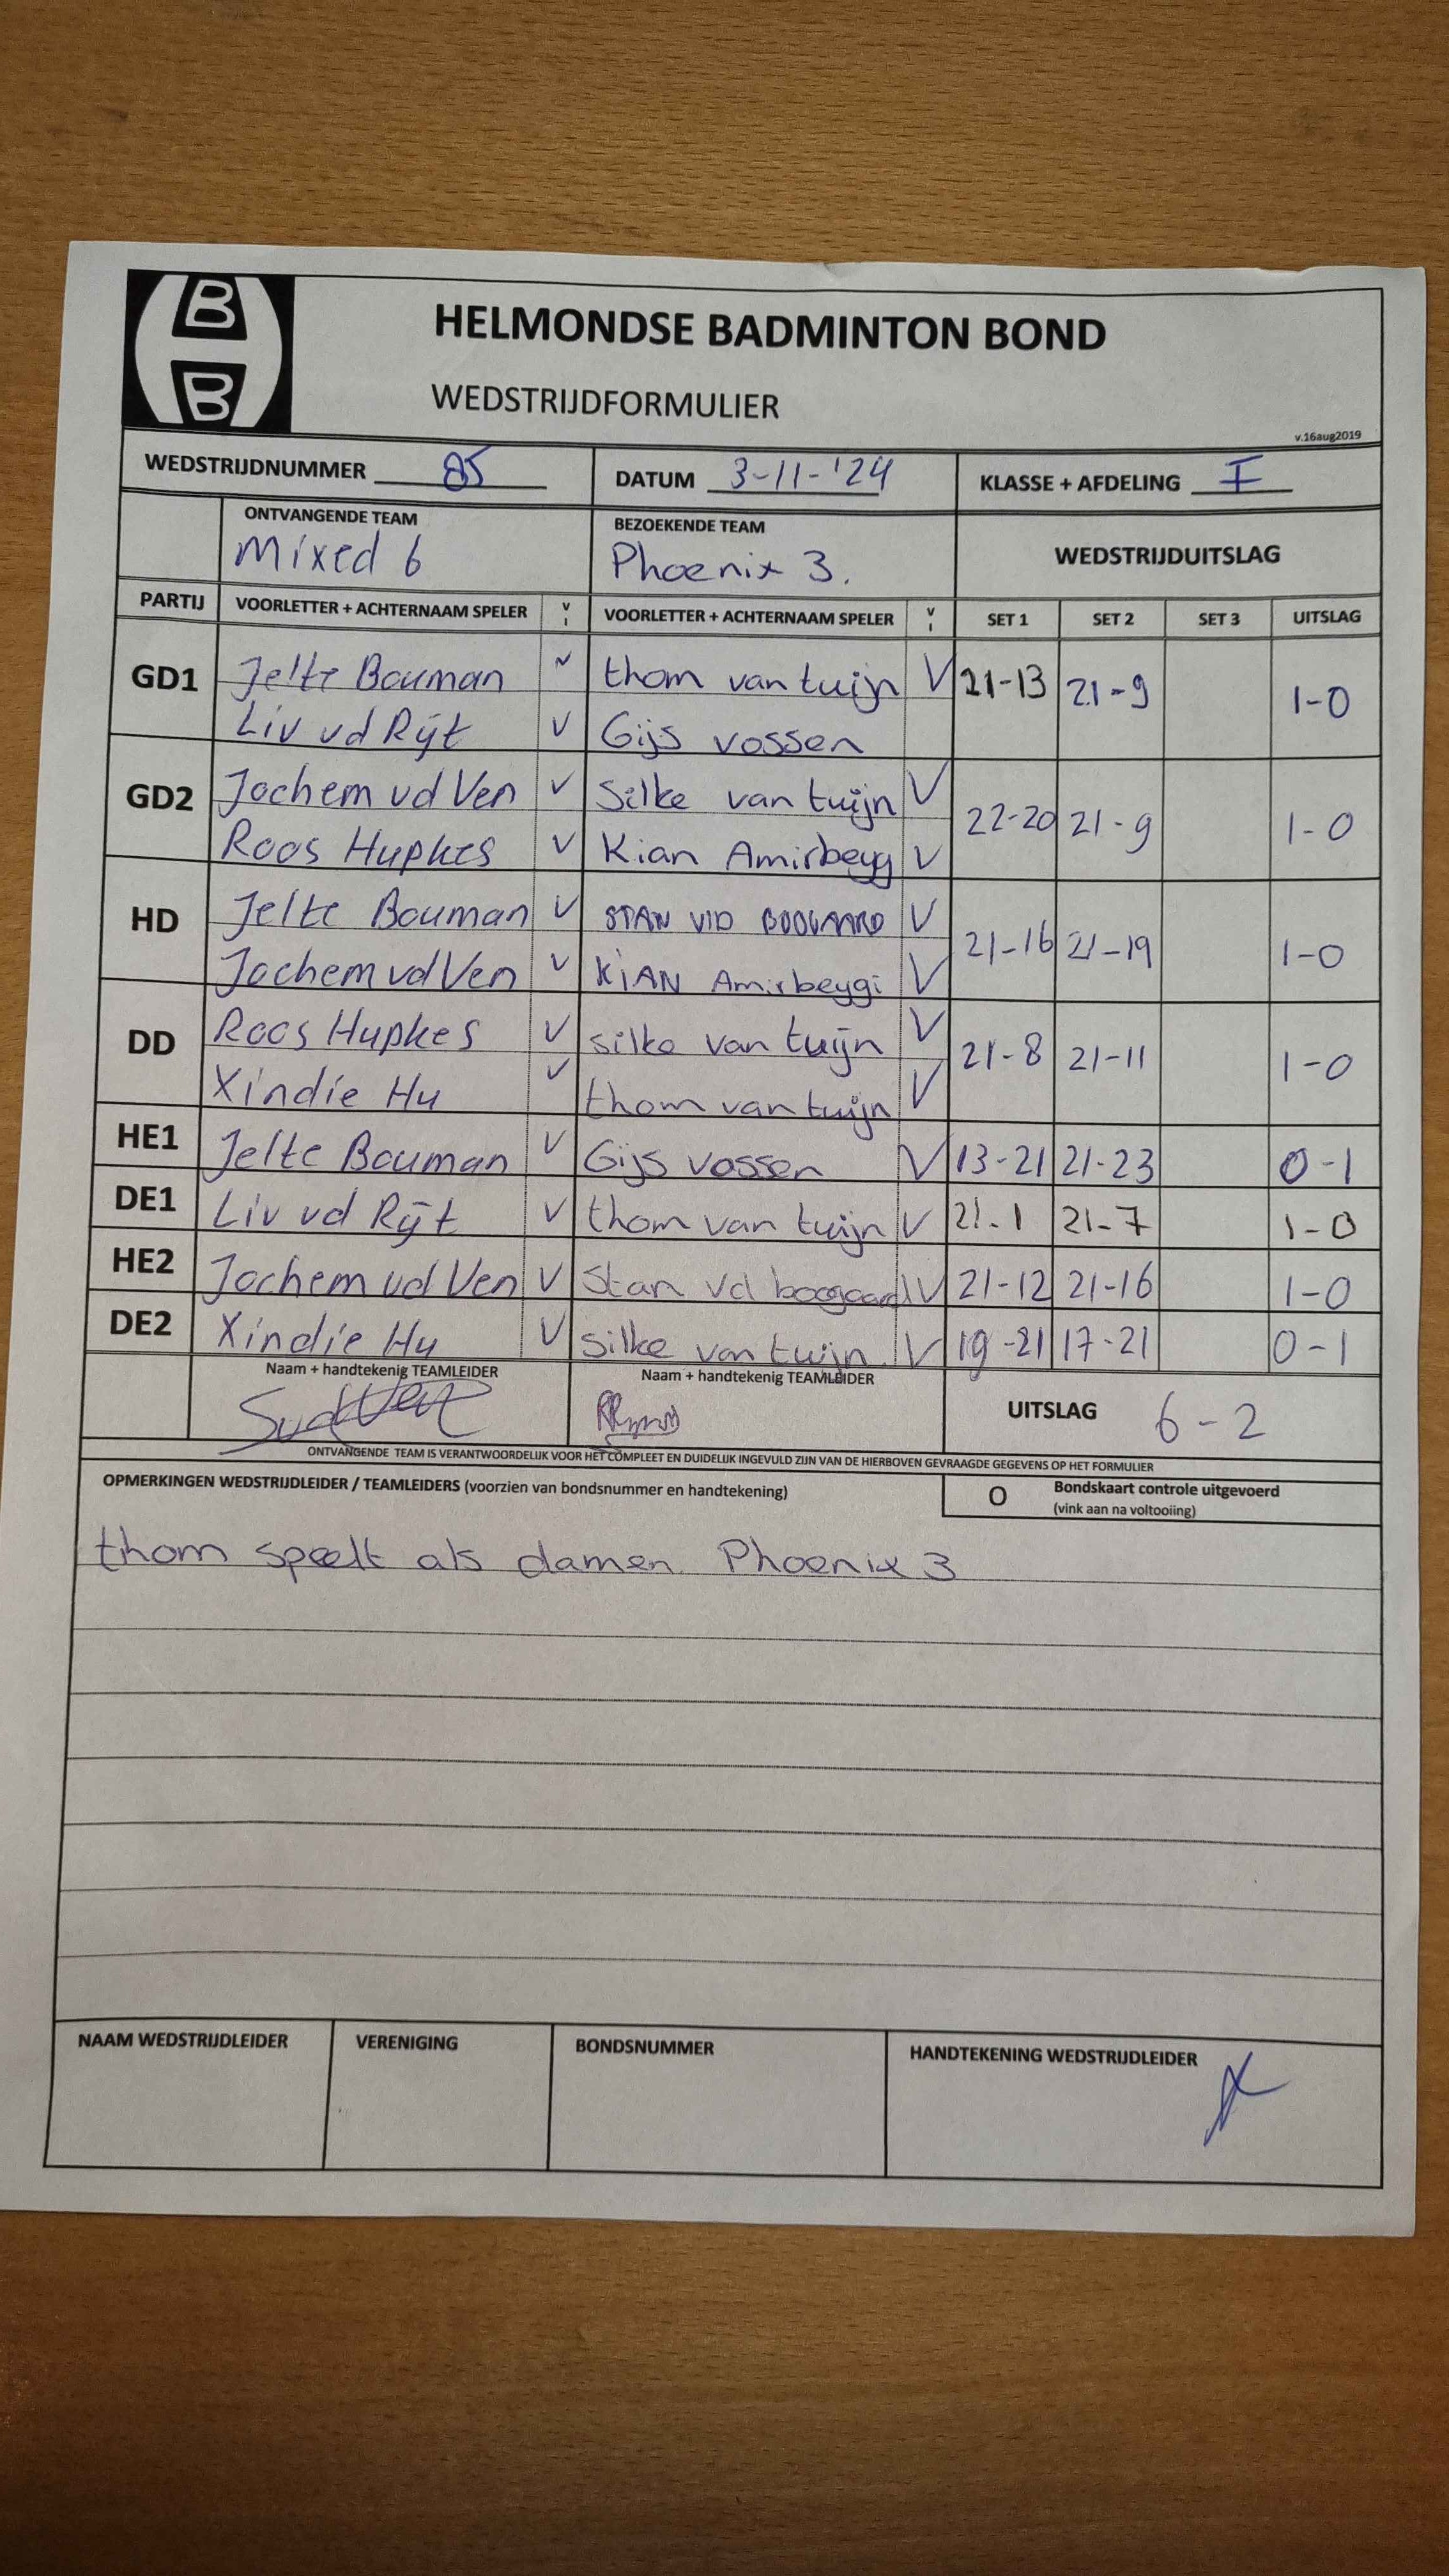 B
B
HELMONDSE BADMINTON BOND
WEDSTRIJDFORMULIER
v.16aug2019
WEDSTRIJDNUMMER 85 DATUM 3-11-'24 KLASSE + AFDELING I
ONTVANGENDE TEAM BEZOEKENDE TEAM WEDSTRIJDUITSLAG
Mixed 6 Phoenix 3.
PARTIJ VOORLETTER + ACHTERNAAM SPELER V I VOORLETTER + ACHTERNAAM SPELER V I SET 1 SET 2 SET 3 UITSLAG
GD1 Jelte Bouman V thom van tuijn V 21-13 21-9 1-0
Liv vd Rijt V Gijs vossen
GD2 Jochem vd Ven V Silke van tuijn V 22-20 21-9 1-0
Roos Hupkes V Kian Amirbeyg V
HD Jelte Bouman V STAN V/D BOOGAARD V 21-16 21-19 1-0
Jochem vd Ven V KIAN Amirbeygi V
DD Roos Hupkes V silke van tuijn V 21-8 21-11 1-0
Xindie Hu V thom van tuijn V
HE1 Jelte Bouman V Gijs vossen V 13-21 21-23 0-1
DE1 Liv vd Rijt V thom van tuijn V 21-1 21-7 1-0
HE2 Jochem vd Ven V Stan vd boogaard V 21-12 21-16 1-0
DE2 Xindie Hu V silke van tuijn. V 19-21 17-21 0-1
Naam + handtekenig TEAMLEIDER Naam + handtekenig TEAMLEIDER UITSLAG 6-2
ONTVANGENDE TEAM IS VERANTWOORDELIJK VOOR HET COMPLEET EN DUIDELIJK INGEVULD ZIJN VAN DE HIERBOVEN GEVRAAGDE GEGEVENS OP HET FORMULIER
OPMERKINGEN WEDSTRIJDLEIDER / TEAMLEIDERS (voorzien van bondsnummer en handtekening) O Bondskaart controle uitgevoerd
(vink aan na voltooiing)
thom speelt als damen. Phoenix 3
NAAM WEDSTRIJDLEIDER VERENIGING BONDSNUMMER HANDTEKENING WEDSTRIJDLEIDER